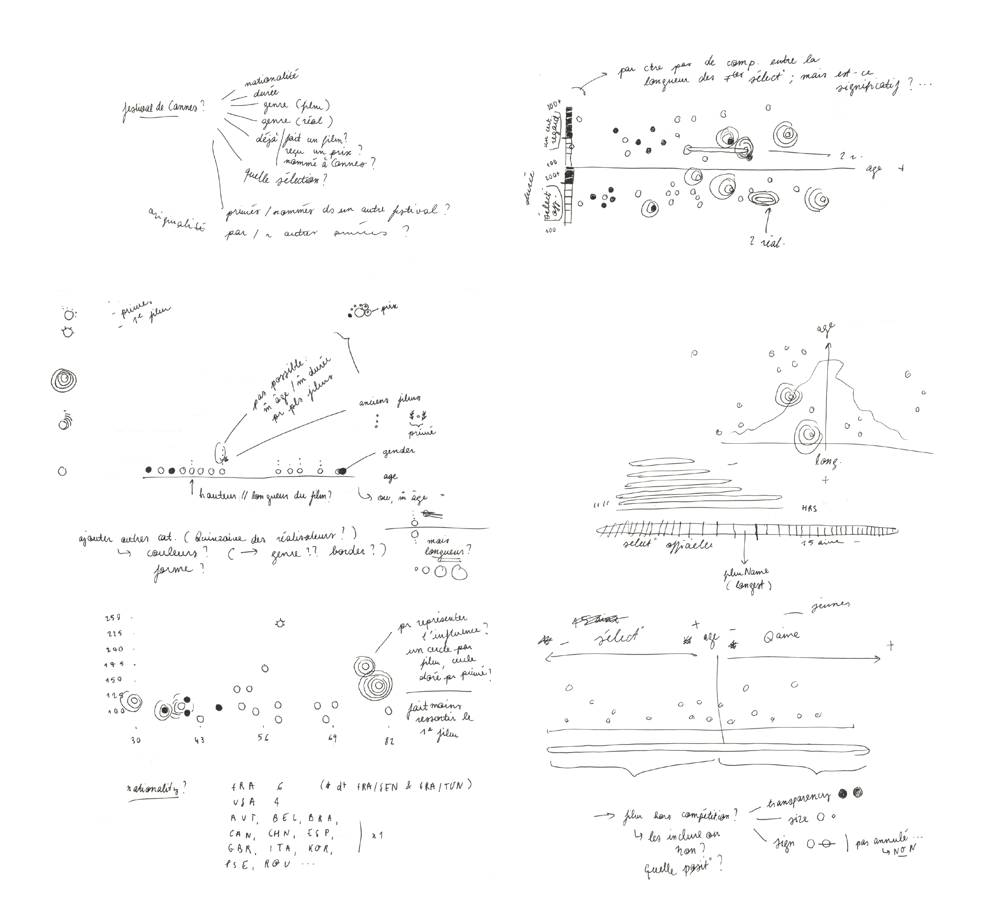 festival de Cannes?
nationalité
durée
genre (film)
genre (réal)
déjà / fait un film?
reçu un prix?
nommé à Cannes?
quelle sélection?
primés / nommés ds un autre festival?
par / autres années ?
par ctre pas de comp. entre la
longueur des sélect°; mais est-ce
significatif ? ...
un cert. regard
durée
sélect° off.
200+
100
200+
100
age +
2 réal.
- primés
- 1e film
prix
pas possible:
m̂ âge / m̂ durée
pr pls films
anciens films
primé
gender
age
↑ hauteur // longueur du film?
↳ ou, m̂ âge =
mais
longueur?
ajouter autres cat. (Quinzaine des réalisateurs?)
↳ couleurs? (→ genre ?? border?)
forme ?
age
long.
+
HRS
sélect° officielle
15aine -
film Name
(longest)
250
225
200
175
150
125
100
30 43 56 69 82
pr représenter
l'influence?
un cercle par
film, cercle
doré pr primé?
fait moins
ressortir le
1e film
jeunes
sélect° + age - Qaine +
nationality?
FRA 6 (# dt FRA/SEN & FRA/TUN)
USA 4
AUT, BEL, BRA,
CAN, CHN, ESP,
GBR, ITA, KOR,
PSE, ROU ...
x1
→ film hors compétition?
transparency
size
sign
pas annulé...
↳ NON
↳ les inclure ou
non?
Quelle posit°?